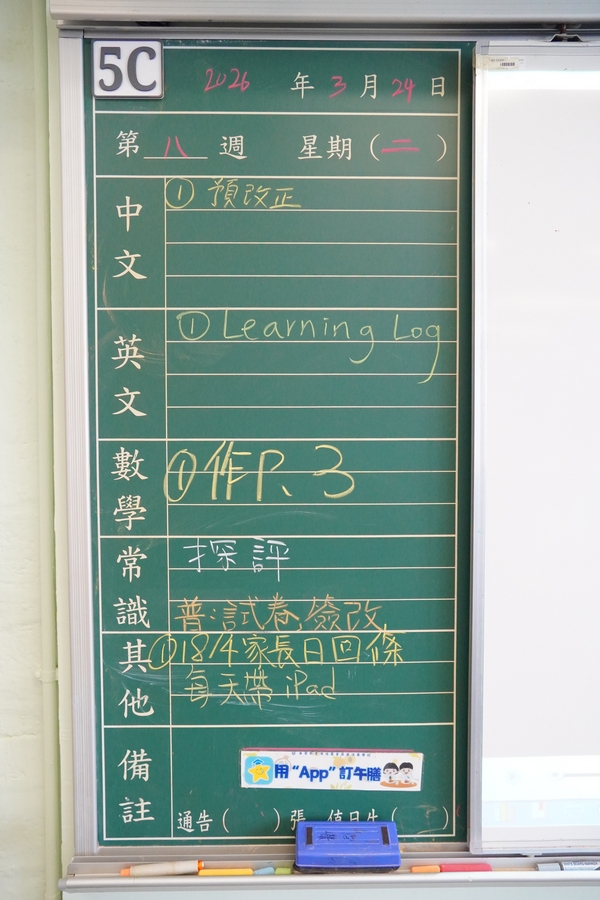 5C
2026 年 3 月 24 日
第 八 週 星期 ( 二 )
中文
① 預改正
英文
① Learning Log
數學
① 作P. 3
常識
探評
普:試卷簽改
其他
① 18/4 家長日回條
每天帶 iPad
備註
用“App”訂午膳
通告( )張 值日生( )